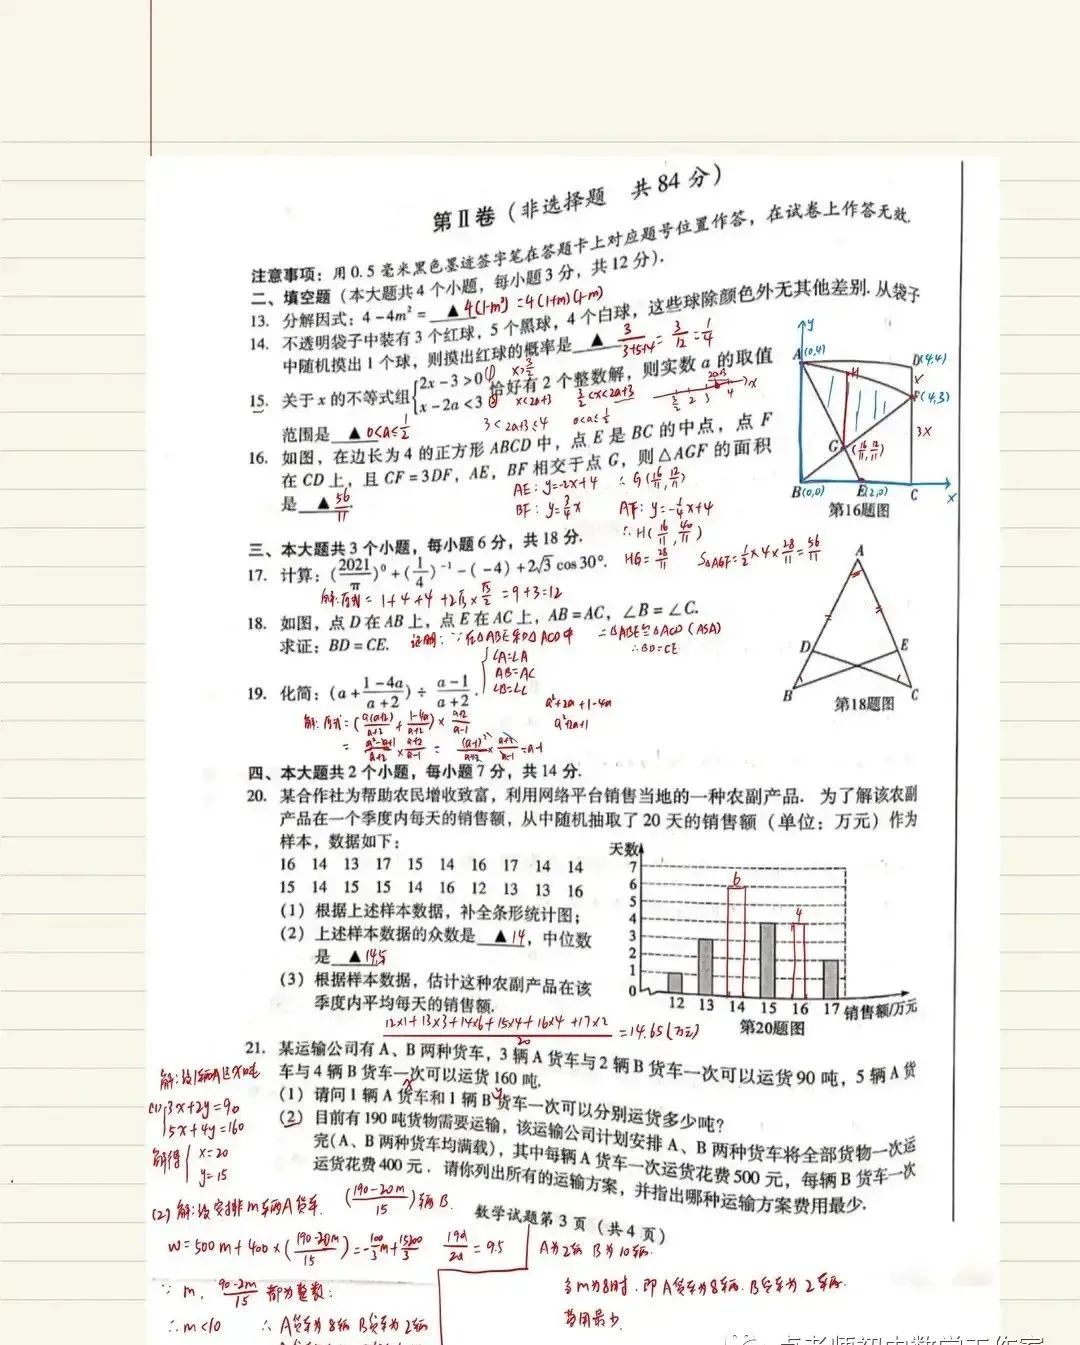 第Ⅱ卷（非选择题 共84分）
注意事项：用0.5毫米黑色墨迹签字笔在答题卡上对应题号位置作答，在试卷上作答无效.
二、填空题（本大题共4个小题，每小题3分，共12分）.
13. 分解因式：4-4m²= ▲ 4(1-m²)=4(1+m)(1-m)
14. 不透明袋子中装有3个红球，5个黑球，4个白球，这些球除颜色外无其他差别. 从袋子
中随机摸出1个球，则摸出红球的概率是 ▲ 3/(3+5+4)=3/12=1/4
15. 关于x的不等式组{2x-3>0 ① x>3/2
x-2a<3 ② x<2a+3 恰好有2个整数解，则实数a的取值
3/2<x<2a+3
3/2 2 3 4 x
2a+3
范围是 ▲ 0<a≤1/2 3<2a+3≤4 0<a≤1/2
16. 如图，在边长为4的正方形ABCD中，点E是BC的中点，点F
在CD上，且CF=3DF，AE，BF相交于点G，则△AGF的面积
是 ▲ 56/11.
AE: y=-2x+4 ∴G(16/11, 12/11)
BF: y=3/4x AF: y=-1/4x+4
∴H(16/11, 40/11)
HG=28/11 S△AGF=1/2×4×28/11=56/11
y
A(0,4) D(4,4)
H x
F(4,3)
G (16/11, 12/11) 3x
B(0,0) E(2,0) C x
第16题图
三、本大题共3个小题，每小题6分，共18分.
17. 计算：(2021/π)⁰+(1/4)⁻¹-(-4)+2√3cos30°.
解:原式=1+4+4+2√3×√3/2=9+3=12
18. 如图，点D在AB上，点E在AC上，AB=AC，∠B=∠C.
求证：BD=CE. 证明：∵在△ABE和△ACD中 ∴△ABE≌△ACD(ASA)
∠A=∠A ∴BD=CE
AB=AC
∠B=∠C
A
D E
B C
第18题图
19. 化简：(a+(1-4a)/(a+2))÷(a-1)/(a+2).
a²+2a+1-4a
a²-2a+1
解:原式=(a(a+2)/(a+2)+(1-4a)/(a+2))×(a+2)/(a-1)
=(a²-2a+1)/(a+2)×(a+2)/(a-1)=(a-1)²/(a+2)×(a+2)/(a-1)=a-1
四、本大题共2个小题，每小题7分，共14分.
20. 某合作社为帮助农民增收致富，利用网络平台销售当地的一种农副产品. 为了解该农副
产品在一个季度内每天的销售额，从中随机抽取了20天的销售额（单位：万元）作为
样本，数据如下：
16 14 13 17 15 14 16 17 14 14
15 14 15 15 14 16 12 13 13 16
（1）根据上述样本数据，补全条形统计图；
（2）上述样本数据的众数是 ▲14，中位数
是 ▲14.5
（3）根据样本数据，估计这种农副产品在该
季度内平均每天的销售额.
天数
7
6 6
5
4 4
3
2
1
0
12 13 14 15 16 17 销售额/万元
第20题图
(12×1+13×3+14×6+15×4+16×4+17×2)/20=14.65(万元)
21. 某运输公司有A、B两种货车，3辆A货车与2辆B货车一次可以运货90吨，5辆A货
车与4辆B货车一次可以运货160吨.
（1）请问1辆A货车和1辆B货车一次可以分别运货多少吨？
x y
（2）目前有190吨货物需要运输，该运输公司计划安排A、B两种货车将全部货物一次运
完（A、B两种货车均满载），其中每辆A货车一次运货花费500元，每辆B货车一次
运货花费400元. 请你列出所有的运输方案，并指出哪种运输方案费用最少.
数学试题第3页（共4页）
解:设1辆A运x吨
(1){3x+2y=90
5x+4y=160
解得{x=20
y=15
(2)解:设安排m车辆A货车. ((190-20m)/15)辆B.
w=500m+400×((190-20m)/15)=-100/3m+15200/3
190/20=9.5
∵m, (190-20m)/15都为整数:
∴m<10 ∴A货车为8辆 B货车为2辆
A为2辆 B为10辆.
当m为8时.即A货车为8辆.B货车为2车辆.
费用最少.